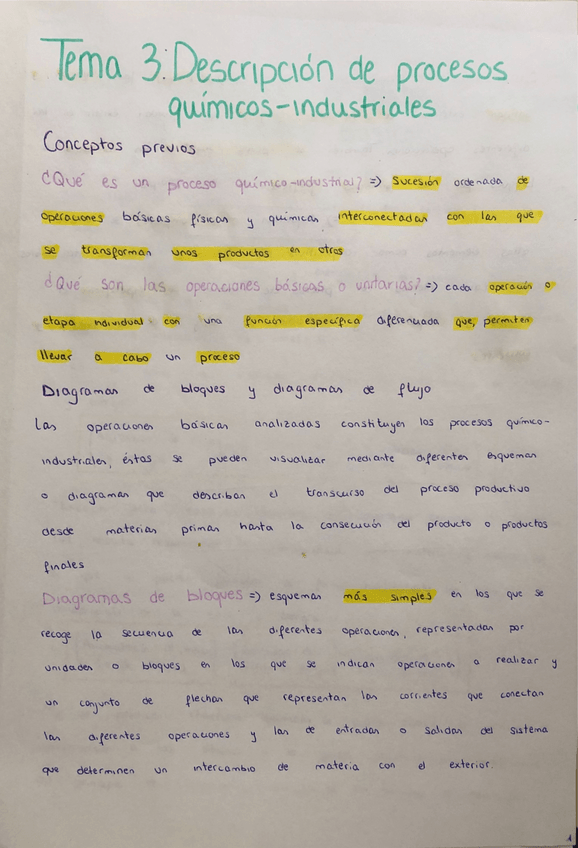 Tema 3: Descripción de procesos
químicos-industriales
Conceptos previos
¿Qué es un proceso químico-industrial? => Sucesión ordenada de
operaciones básicas físicas y químicas interconectadas con las que
se transforman unos productos en otros
¿Qué son las operaciones básicas o unitarias? => cada operación o
etapa individual con una función específica diferenciada que, permiten
llevar a cabo un proceso
Diagramas de bloques y diagramas de flujo
Las operaciones básicas analizadas constituyen los procesos químico-
industriales, éstas se pueden visualizar mediante diferentes esquemas
o diagramas que describan el transcurso del proceso productivo
desde materias primas hasta la consecución del producto o productos
finales
Diagramas de bloques => esquemas más simples en los que se
recoge la secuencia de las diferentes operaciones, representadas por
unidades o bloques en los que se indican operaciones a realizar y
un conjunto de flechas que representan las corrientes que conectan
las diferentes operaciones y las de entradas o salidas del sistema
que determinen un intercambio de materia con el exterior.
1